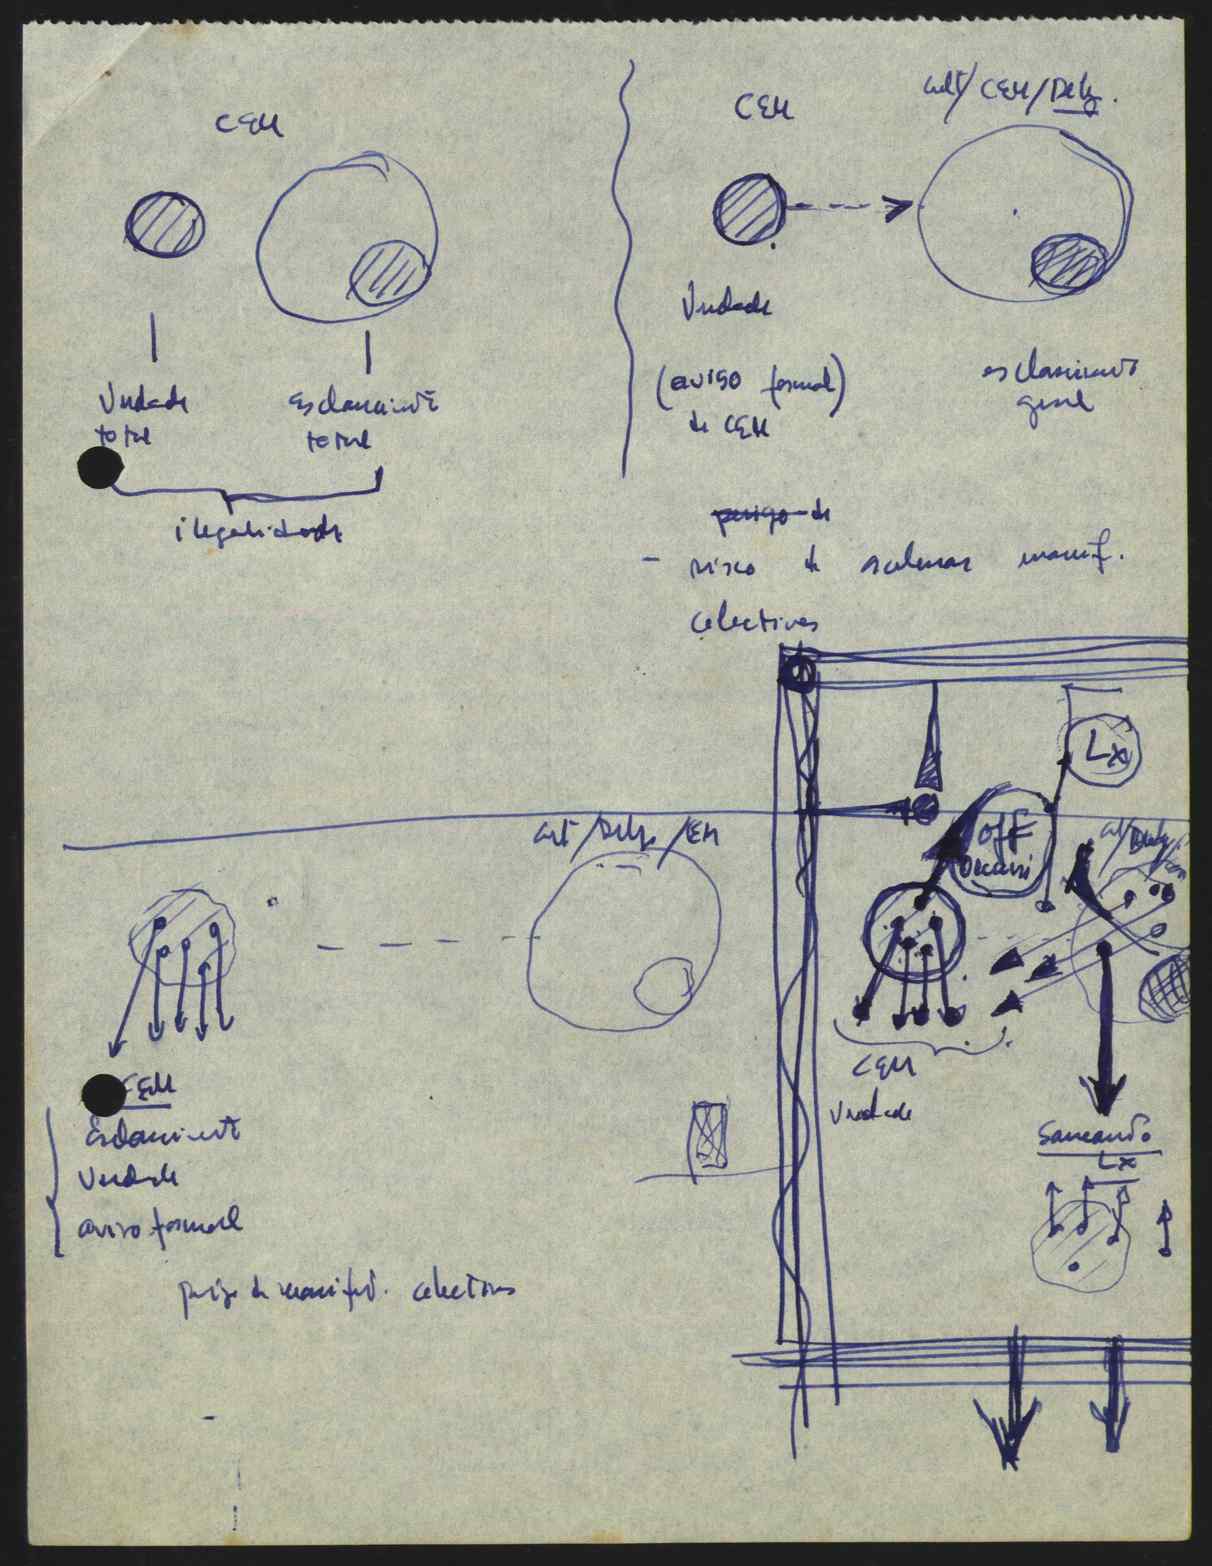 CEM
Verdade
total
Esclarecimento
total
ilegalidade
CEM
/CEM/Delg.
Verdade
(aviso formal)
de CEM
esclarecimento
geral
perigo de
- risco de acelerar manif.
colectivas
Lx
off
/Delg. /CEM
CEM
Verdade
Saneando
Lx
CEM
Esclarecimento
Verdade
aviso formal
perigo de manifest. colectivas